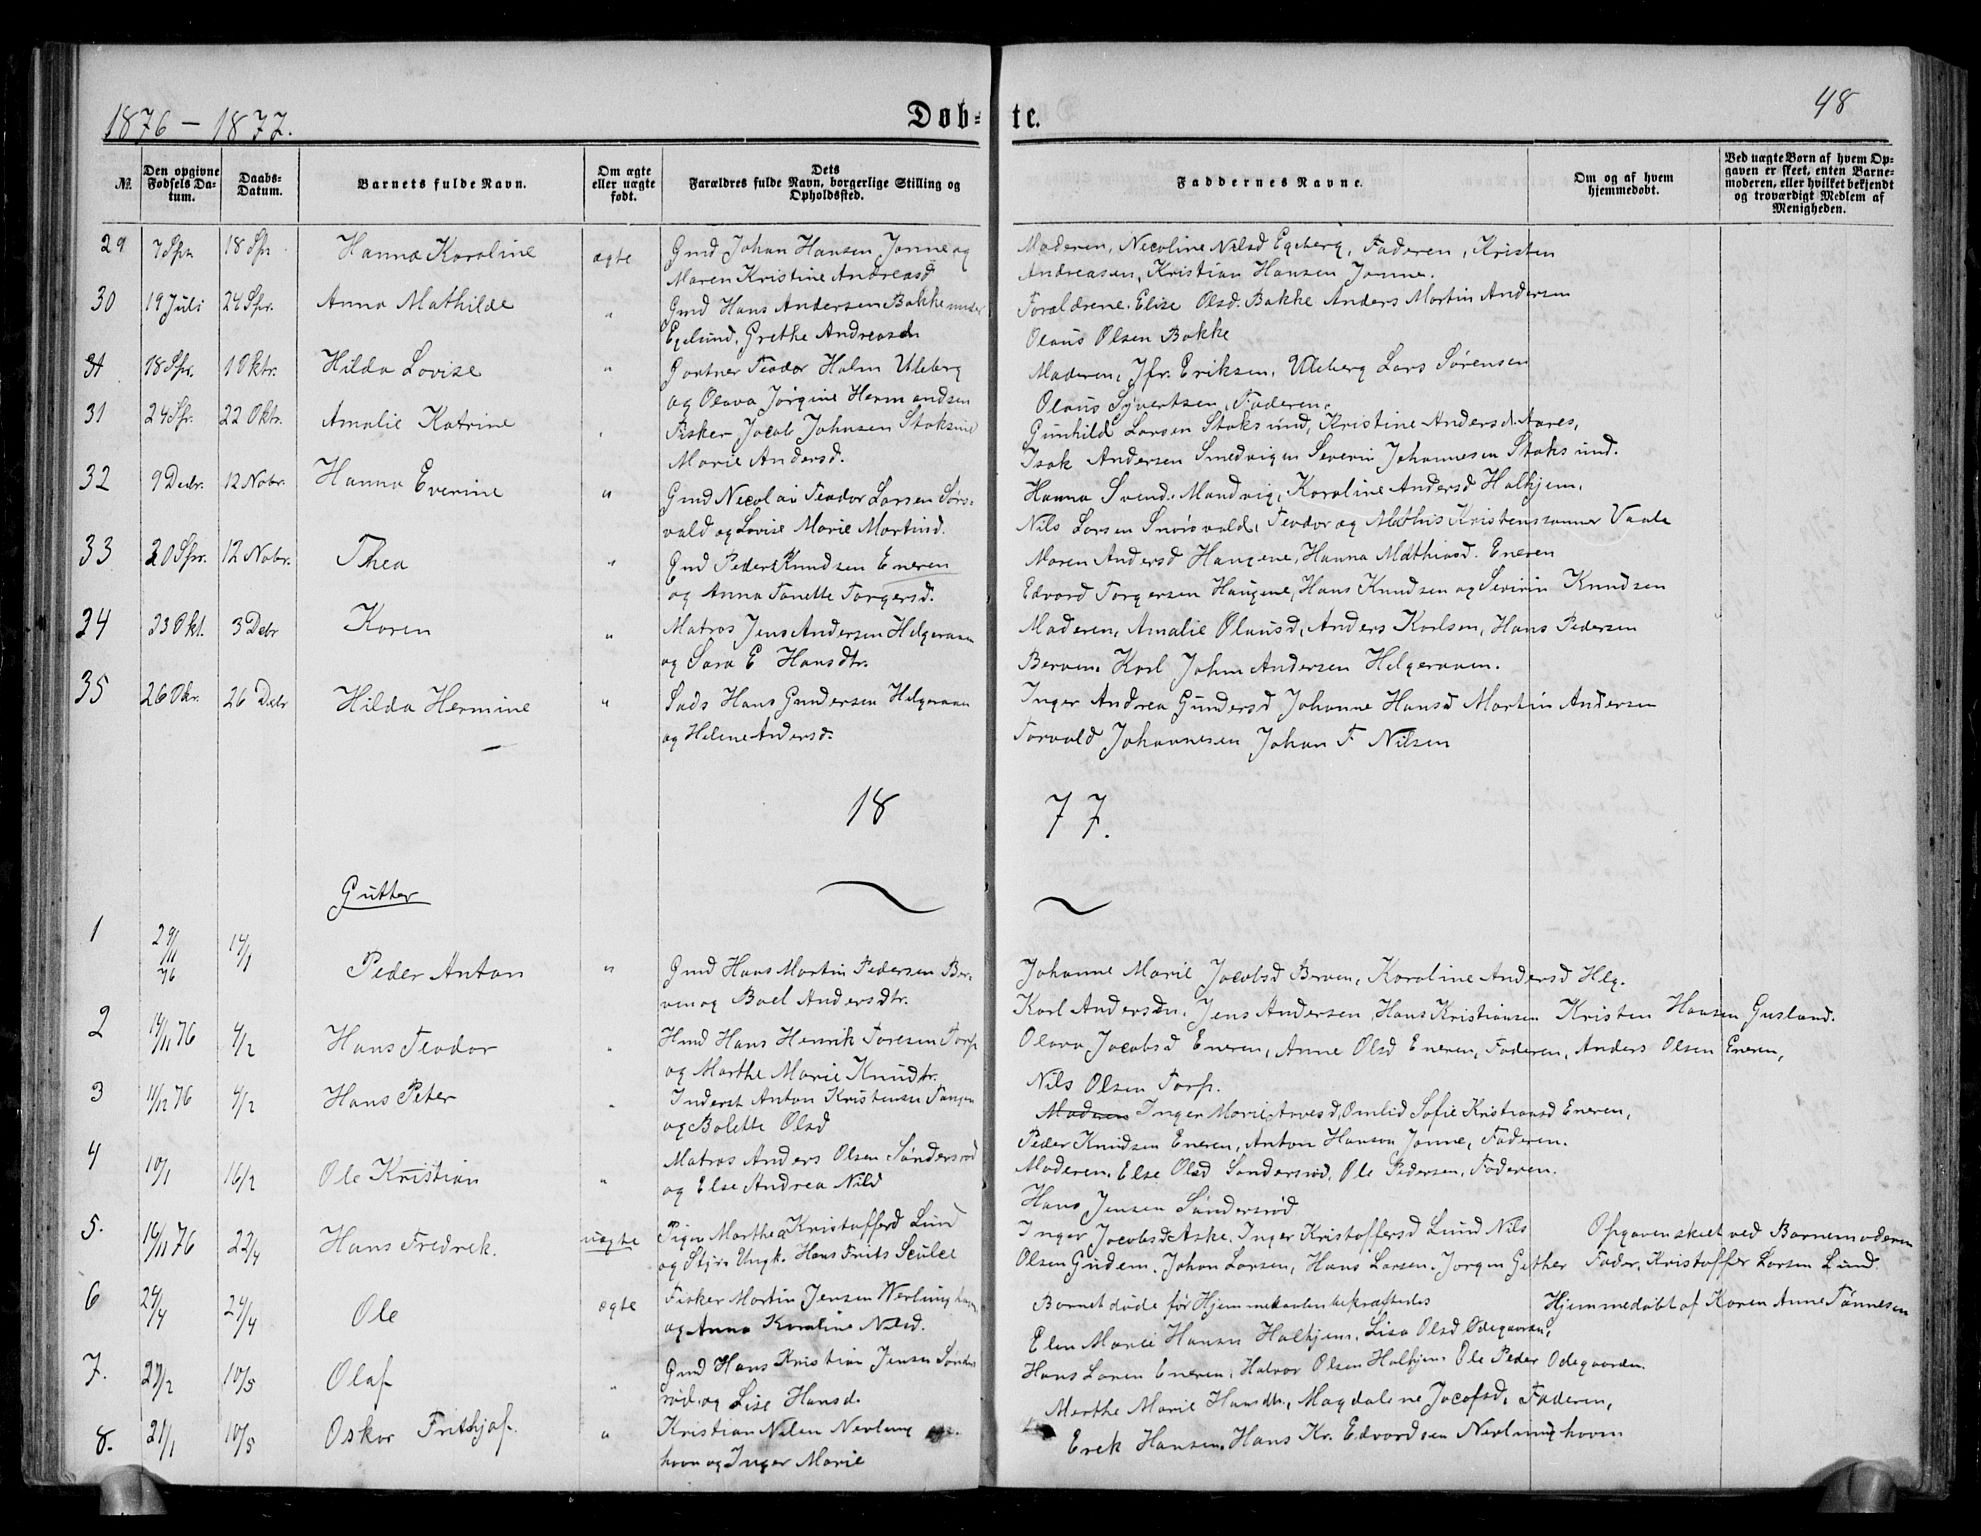 1876 – 1877.
Døb-te.
48
№
Den opgivne Fødsels Da-tum.
Daabs-Datum.
Barnets fulde Navn.
Om ægte eller uægte født.
Dets Forældres fulde Navn, borgerlige Stilling og Opholdssted.
Faddernes Navne.
Om og af hvem hjemmedøbt.
Ved uægte Børn af hvem Op-gaven er skeet, enten Barne-moderen, eller hvilket bekjendt og troværdigt Medlem af Menigheden.
29 7 Spr 18 Spr Hanna Karoline ægte Gmd Johan Hansen Jonne og Moderen, Necoline Nilsd Egeberg, Faderen, Kristen
Maren Kristine Andreasd Andreasen, Kristian Hansen Jonne.
30 19 Juli 24 Spr. Anna Mathilde " Gmd Hans Andersen Bakke Forældrene. Elise Olsd. Bakke Anders Martin Andersen
Grethe Andreasd Olaus Olsen Bakke
18 Spr. 1 Oktr. Hilda Lovise " Gartner Teodor Holm Uleberg Moderen, Jfr. Eriksen, Uleberg Lars Sørensen
og Olava Jørgine Hermandsen Olaus Syvertsen, Faderen.
31 24 Spr. 22 Oktr. Amalie Katrine " Fisker Jacob Johnsen Gunhild Larsen Stoksund, Kristine Andersd. Aares,
Marie Andersd. Isak Andersen Smedvigen Severin Johannesen Stoksund.
32 9 12 Nobr. Hanna Everine " Gmd Necolai Teodor Larsen Hanna Svend. Mandvig, Karoline Andersd Halhjem,
vald og Lovise Marie Martinsd. Nils Larsen Teodor og Mathis Kristenssønner Vaale
33 20 Spr. 12 Nobr. Thea " Gmd Peder Knudsen Eneren Maren Andersd Haugene, Hanna Mathiasd. Eneren
og Anna Tonette Torgersd. Edvard Torgersen Haugene, Hans Knudsen og Severin Knudsen
34 23 Okt. 3 Debr Karen " Matros Jens Andersen Helgeraaen Moderen, Amalie Olausd, Anders Karlsen, Hans Pedersen
og Sara E Hansdtr. Berven. Karl Johan Andersen Helgeraaen.
35 26 Okr. 26 Debr Hilda Hermine " Hans Gundersen Helgeraaen Inger Andrea Gundersd Johanne Hansd Martin Andersen
og Helene Andersd. Torvald Johannesen Johan F Nilsen
18 77.
Gutter
1 29/11 76 14/1 Peder Anton " Gmd Hans Martin Pedersen Ber- Johanne Marie Jacobsd Berven, Karoline Andersd Helg.
ven og Boel Andersdtr. Karl Andersen. Jens Andersen, Hans Kristiansen Kristen Hansen Gusland.
2 14/11 76 4/2 Hans Teodor " Hmd Hans Henrik Toresen Torp Olava Jacobsd Eneren, Anne Olsd Eneren, Faderen, Anders Olsen Eneren,
og Marthe Marie Knudtr. Nils Olsen Torp.
3 11/12 76 4/2 Hans Peter " Inderst Anton Kristensen Tangen Moderen Inger Marie Arvesd, Omlid Sofie Kristiansd Eneren,
og Bolette Olsd Peder Knudsen Eneren, Anton Hanson Jonne, Faderen.
4 10/1 16/2 Ole Kristian " Matros Anders Olsen Søndersrød Moderen. Else Olsd Søndersrød, Ole Pedersen, Faderen.
og Else Andrea Nilsd Hans Jensen Søndersrød
5. 14/11 76 22/4 Hans Fredrek. uægte Pigen Marthea Kristoffersd Lund Inger Jacobsd Aske. Inger Kristoffersd Lund Nils Opgaven skeet ved Barnemoderen
og Styrm Ungk. Hans Frits Olsen Gudem. Johan Larsen, Hans Larsen. Jørgen Gether Fader, Kristoffer Larsen Lund.
6 24/4 24/4 Ole ægte Fisker Martin Jensen Nerlunghavn Barnet døde før Hjemmedaaben bekræftedes Hjemmedøbt af Karen Anne Tønnesen
og Anna Karoline Nilsd. Elen Marie Hansen Halhjem, Lisa Olsd Ødegaarden,
7. 27/2 10/5 Olaf " Gmd Hans Kristian Jensen Sønders Hans Laren Eneren, Halvor Olsen Halhjem Ole Peder Ødegaarden
rød. og Lise Hansd. Marthe Marie Hansdtr. Magdalene Jacobsd, Faderen,
8. 21/1 10/5 Oskar Frithjof. " Kristian Nilsen Nevlung Erek Hansen, Hans Kr. Edvardsen Nevlunghavn
havn og Inger Marie